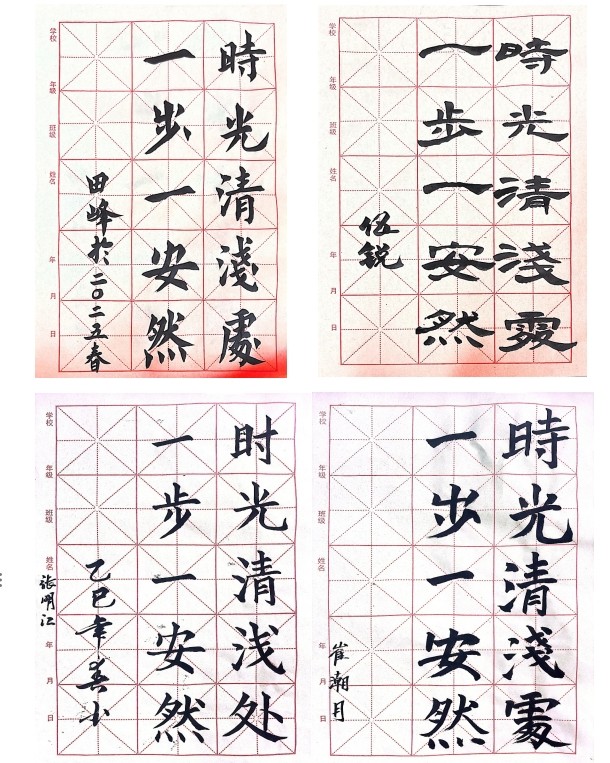 時光清淺處
一步一安然
田峰於二〇二五春
学校 年级 班级 姓名 年 月 日
時光清淺處
一步一安然
伍锐
学校 年级 班级 姓名 年 月 日
时光清浅处
一步一安然
乙巳年春
张明江
学校 年级 班级 姓名 年 月 日
時光清淺處
一步一安然
崔潮月
学校 年级 班级 姓名 年 月 日